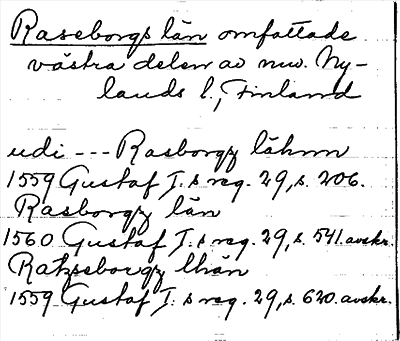 Raseborgs län omfattade
västra delen av nuv. Ny-
lands l., Finland
udi --- Rasborgz lähnn
1559 Gustaf I:s reg. 29, s. 206.
Rasborgz län
1560 Gustaf I:s reg. 29, s. 541. avskr.
Ratzseborgz lhän
1559 Gustaf I:s reg. 29, s. 620. avskr.